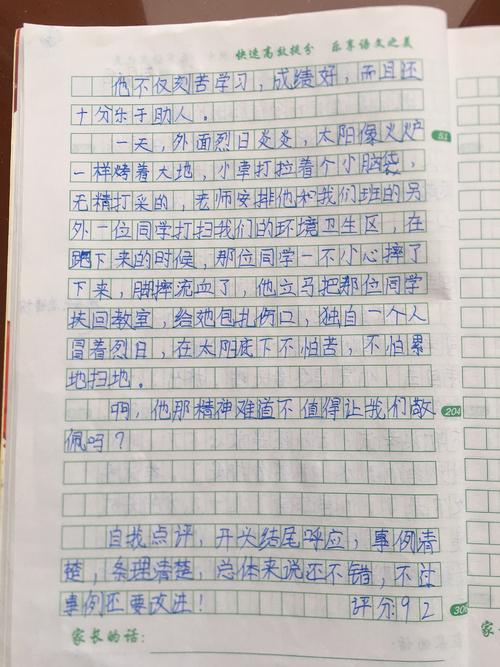 快速高效提分 乐享语文之美
他不仅刻苦学习，成绩好，而且还
十分乐于助人。
一天，外面烈日炎炎，太阳像火炉
一样烤着大地，小草打拉着个小脑袋，
无精打采的，老师安排他和我们班的另
外一位同学打扫我们的环境卫生区，在
跑下来的时候，那位同学一不小心摔了
下来，脚摔流血了，他立马把那位同学
扶回教室，给她包扎伤口，独自一个人
冒着烈日，在太阳底下不怕苦，不怕累
地扫地。
啊，他那精神难道不值得让我们敬
佩吗？
自我点评，开头结尾呼应，事例清
楚，条理清楚，总体来说还不错，不过
事例还要改进！ 评分：92
家长的话：
51
204
306